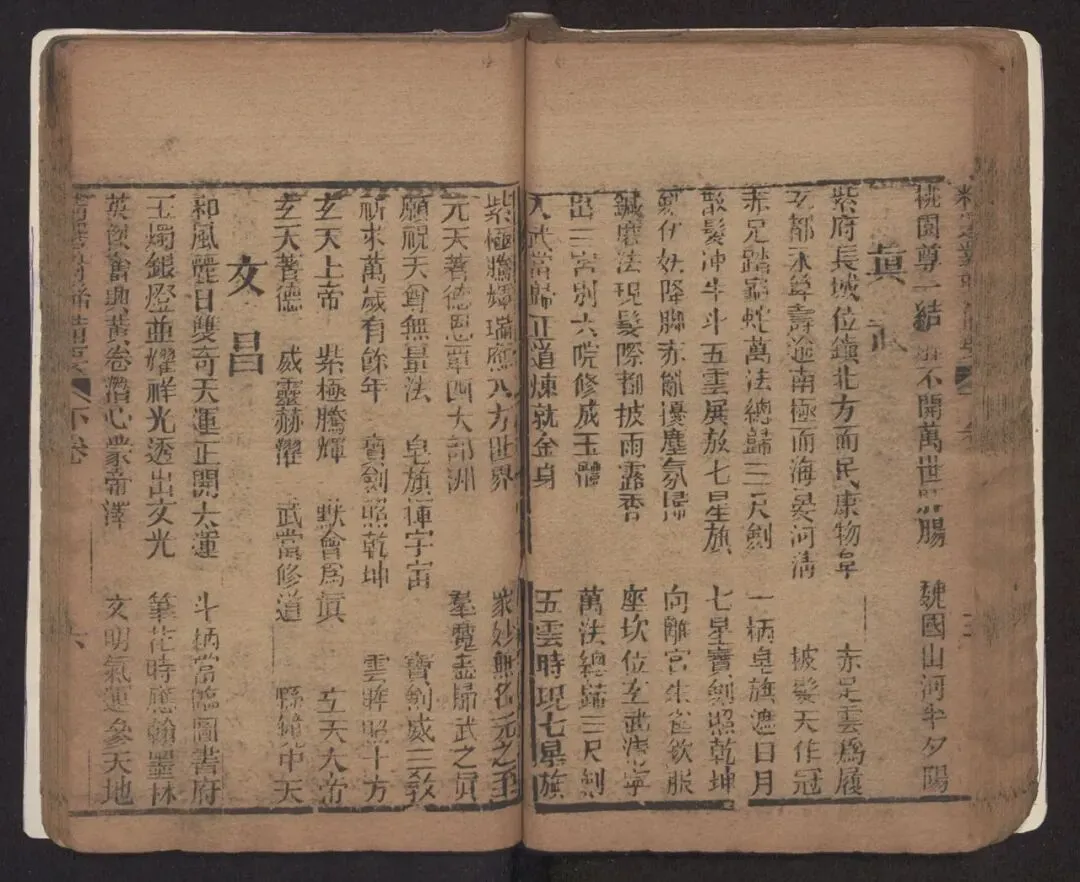 桃園尊一結 不開萬世 腸 魏國山河半夕陽
真武
紫府長城位鎮北方而民康物阜 赤足雲為履
玄都永尊壽逾南極而海晏河清 披髮天作冠
赤足踏龜蛇萬法總歸三尺劍 一柄皂旗遮日月
散髮冲牛斗五雲展放七星旗 七星寶劍照乾坤
伏妖降脚赤能擾塵氛歸 向離宮朱雀欽服
鍼磨法現髮際都披雨露香 座坎位玄武清寧
出三宮別六院修成玉體 萬法總歸三尺劍
入武當歸正道煉就金身 五雲時現七星旗
紫極騰輝瑞應八方世界 眾妙無名元之至
元天著德恩覃四大部洲 羣魔盡歸武之真
願祝天尊無量法 皂旗運宇宙 寶劍威三教
祈求萬歲有餘年 寶劍照乾坤 雲眸照十方
玄天上帝 紫極騰輝 默會為真 玄天大帝
玄天著德 威靈赫濯 武當修道 中天
文昌
和風麗日雙奇天運正開大運 斗柄當臨圖書府
玉燭銀燈並耀祥光透出文光 筆花時應翰墨林
英 奮興黃卷潛心蒙帝澤 文明氣運參天地
下卷
六